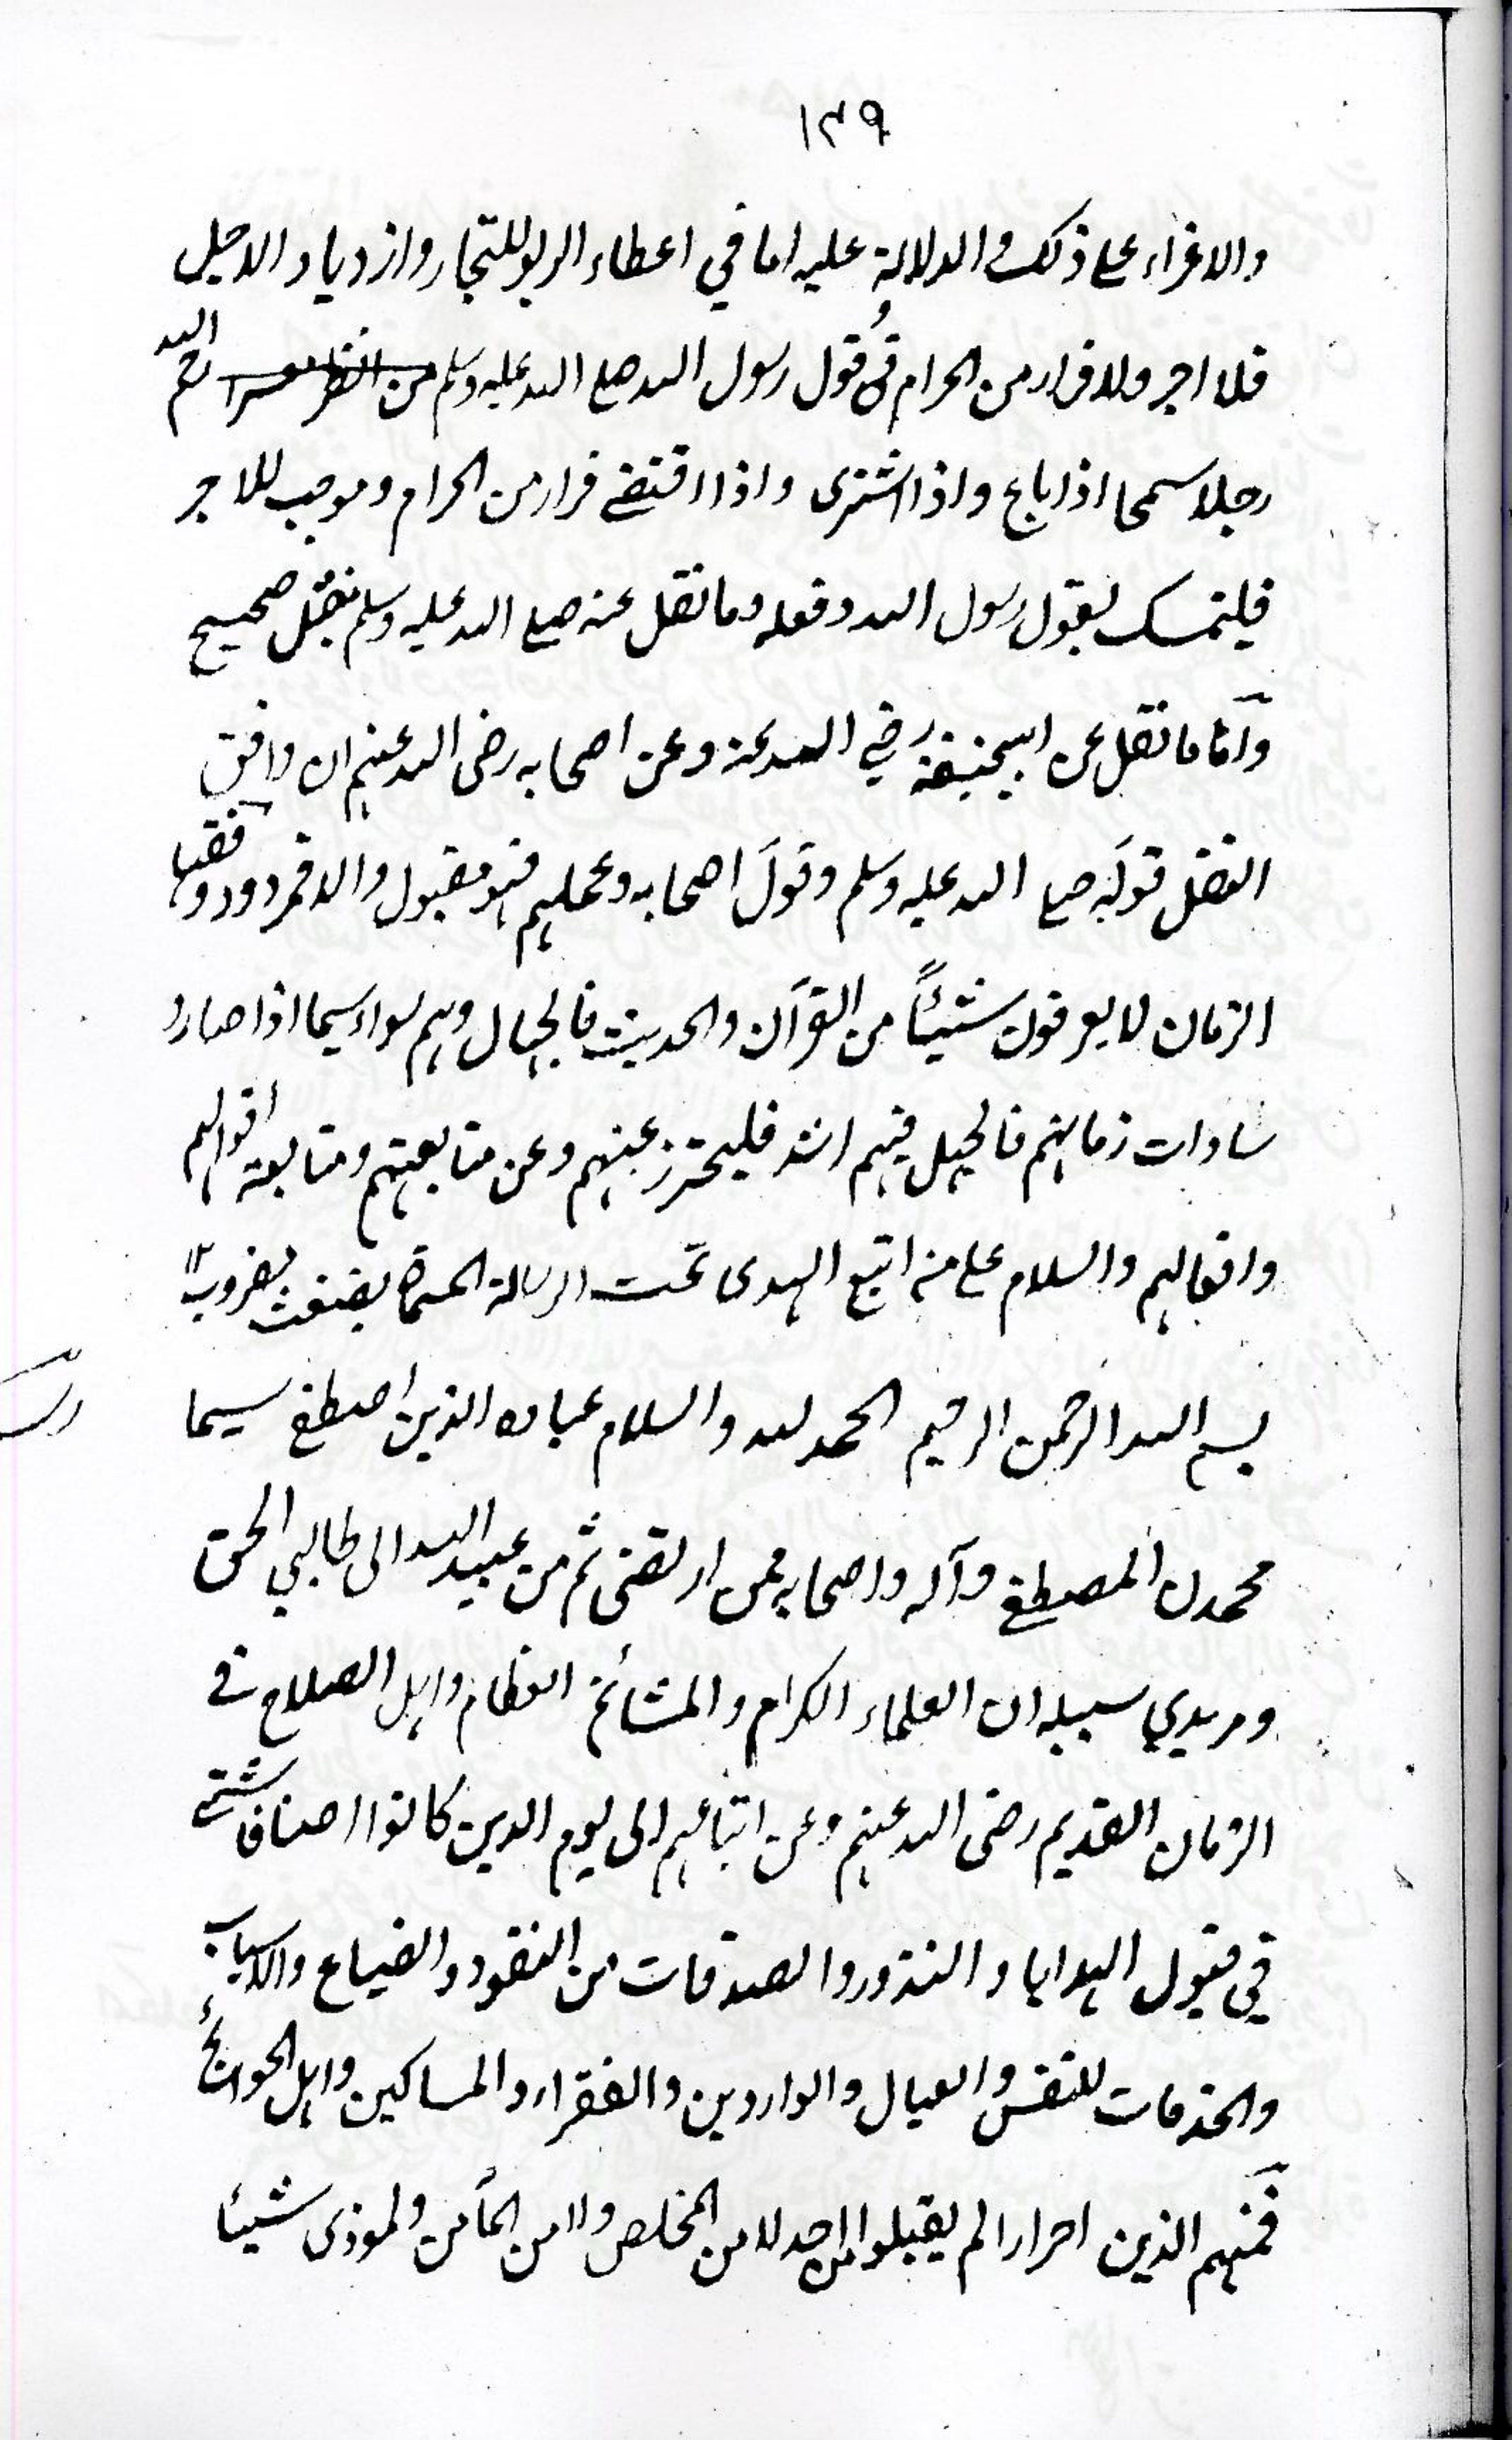 ١٣٩
والاغراء على ذلك والدلالة عليه اما في اعطاء الربو للتجار وازدياد الاجل
فلا اجر ولا فرار من الحرام في قول رسول الله صلى الله عليه وسلم رحم الله
رجلا سمحا اذا باع واذا اشترى واذا اقتضى فرار من الحرام وموجب للاجر
فليتمسك بقول رسول الله وفعله وما نقل عنه صلى الله عليه وسلم بنقل صحيح
واما ما نقل عن ابيحنيفة رضي الله عنه وعن اصحابه رضى الله عنهم ان وافق
النقل قوله صلى الله عليه وسلم وقول اصحابه وعملهم فهو مقبول والا فمردود وفقهاء
الزمان لا يعرفون شيئاً من القرآن والحديث فالجهال وهم سواء سيما اذا صاروا
سادات زمانهم فالجهل فيهم اشد فليحترز عنهم وعن متابعتهم ومتابعة اقوالهم
وافعالهم والسلام على من اتبع الهدى تمت الرسالة المسماة
بسم الله الرحمن الرحيم الحمد لله والسلام عباده الذين اصطفى سيما
محمدن المصطفى وآله واصحابه ممن ارتضى ثم من عبيد الله الى طالبي الحق
ومريدي سبيله ان العلماء الكرام والمشائخ العظام واهل الصلاح في
الزمان القديم رضى الله عنهم وعن اتباعهم الى يوم الدين كانوا اصنافا شتى
في قبول الهدايا والنذور والصدقات من النقود والضياع والاسباب
والخدمات للنفس والعيال والواردين والفقراء والمساكين واهل الحوائج
فمنهم الذين احرارا لم يقبلوا من احد لا من المخلص ولا من المأمن والموذى شيئا